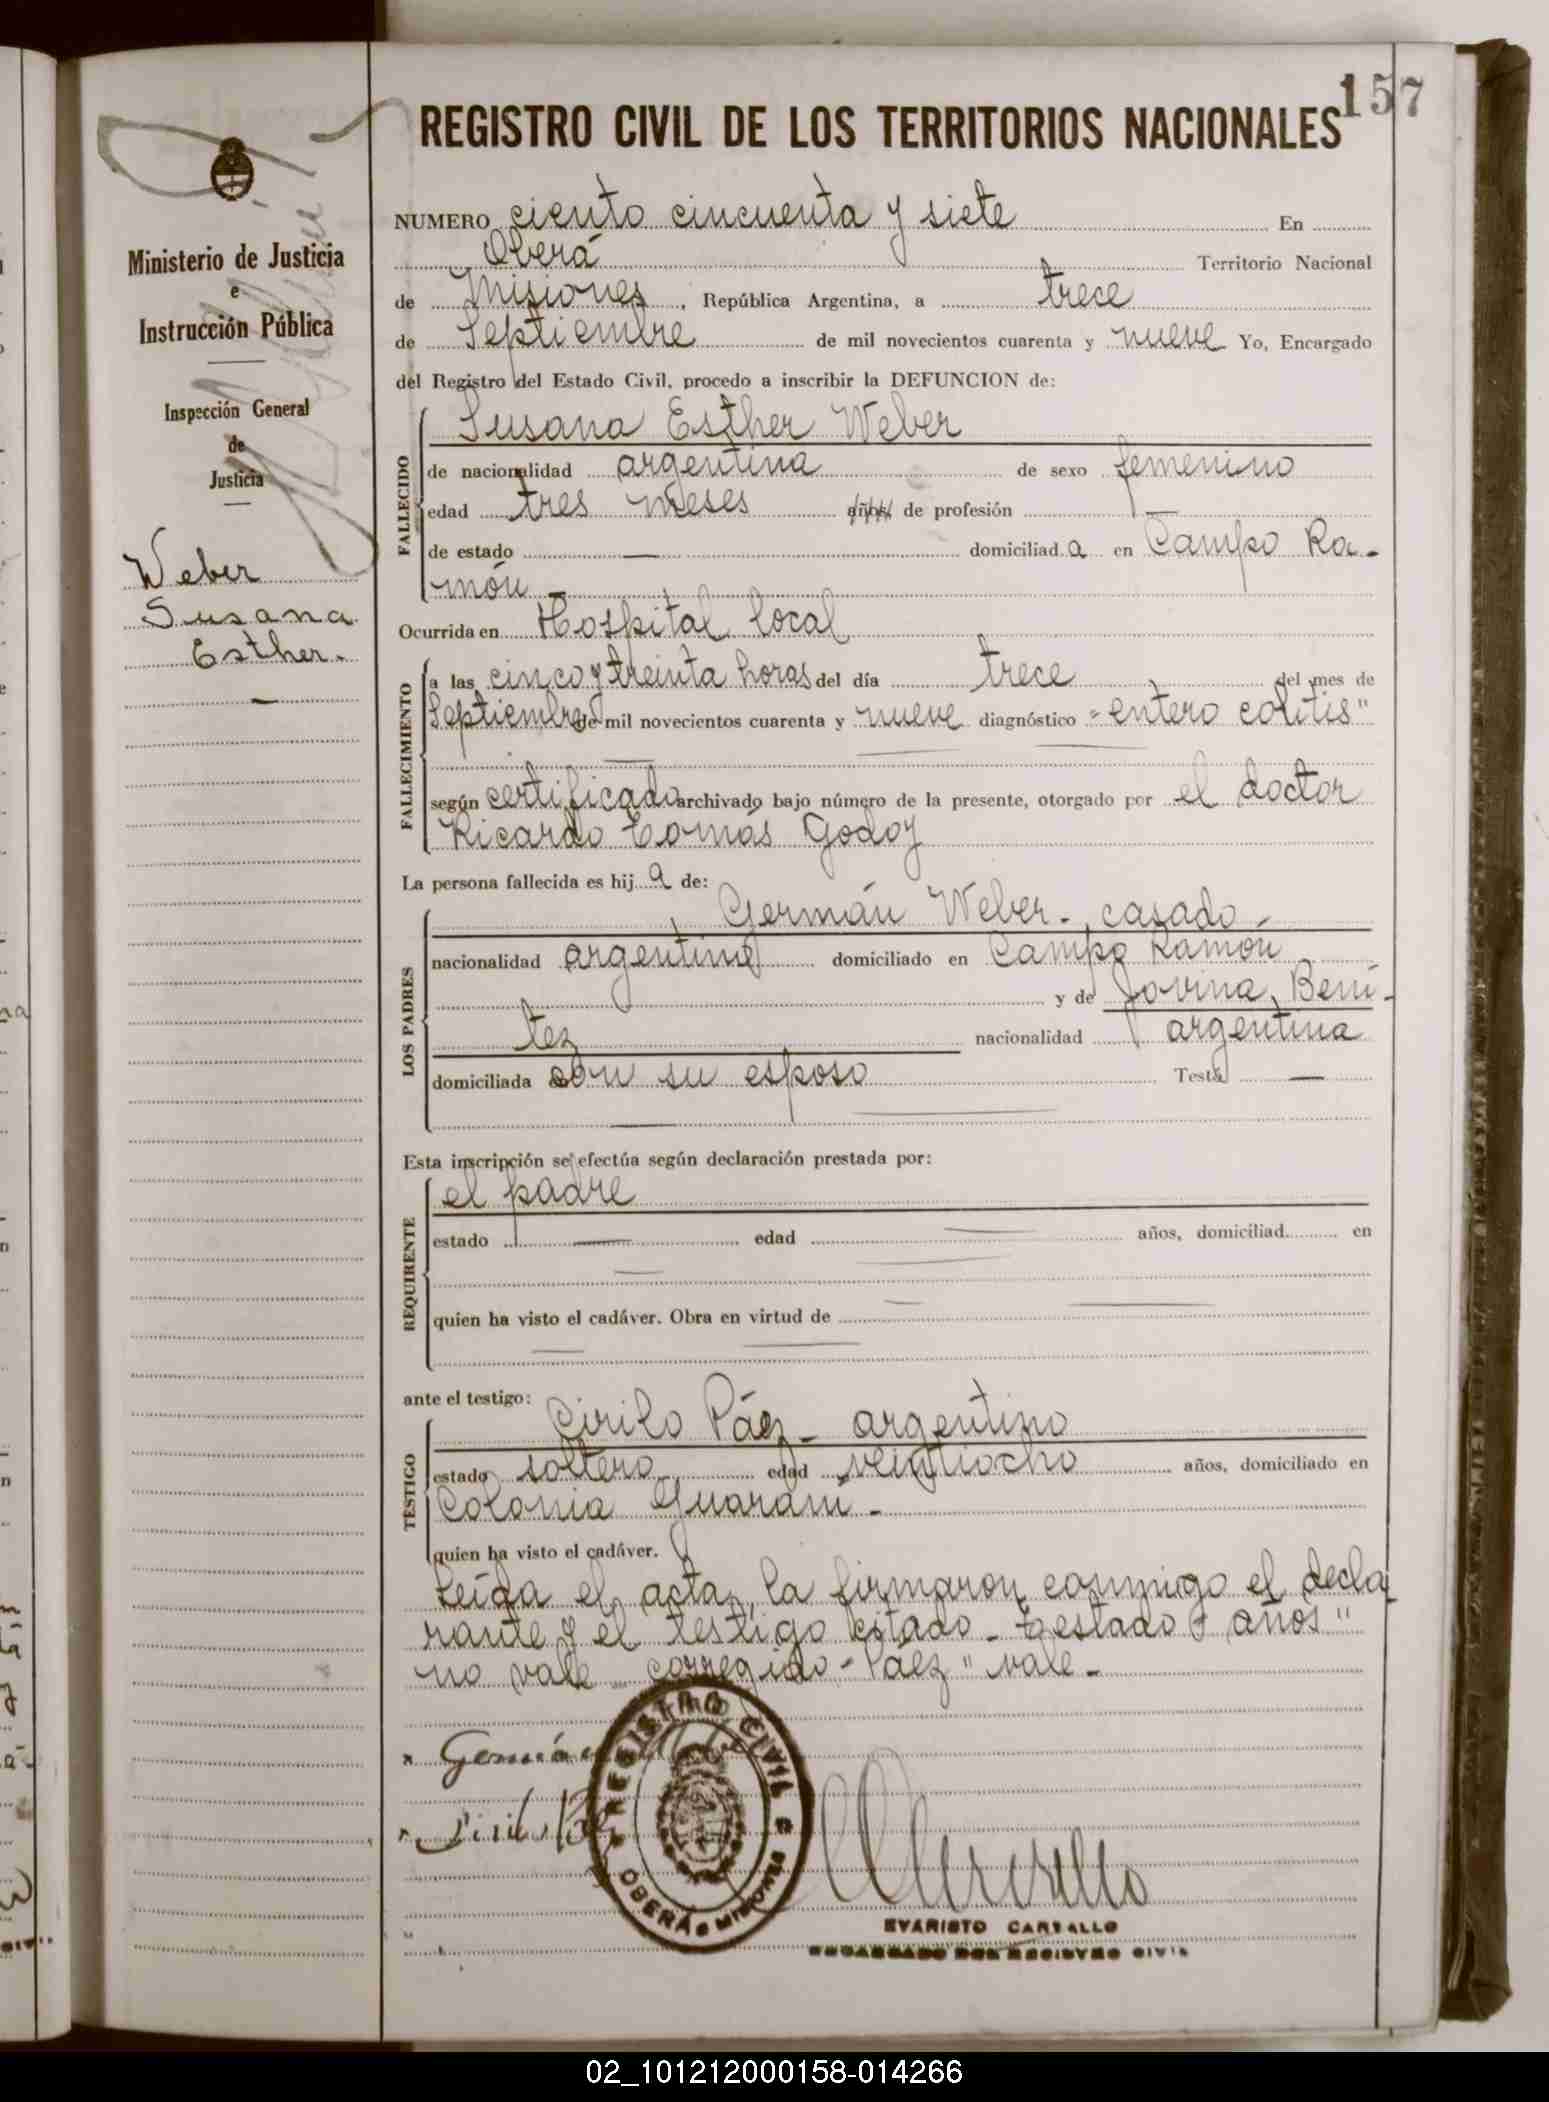 157
REGISTRO CIVIL DE LOS TERRITORIOS NACIONALES
Ministerio de Justicia
e
Instrucción Pública
Inspección General
de
Justicia
Weber
Susana
Esther.
NUMERO ciento cincuenta y siete En
Oberá Territorio Nacional
de Misiones, República Argentina, a trece
de Septiembre de mil novecientos cuarenta y nueve Yo, Encargado
del Registro del Estado Civil, procedo a inscribir la DEFUNCION de:
FALLECIDO
Susana Esther Weber
de nacionalidad argentina de sexo femenino
edad tres meses años de profesión
de estado — domiciliada en Campo Ra-
món
Ocurrida en Hospital local
FALLECIMIENTO
a las cinco y treinta horas del día trece del mes de
Septiembre de mil novecientos cuarenta y nueve diagnóstico "entero colitis"
según certificado archivado bajo número de la presente, otorgado por el doctor
Ricardo Tomás Godoy
La persona fallecida es hija de:
LOS PADRES
Germán Weber-, casado-
nacionalidad argentino domiciliado en Campo Ramón
y de Jovina Bení-
tez nacionalidad argentina
domiciliada con su esposo Testó —
Esta inscripción se efectúa según declaración prestada por:
REQUIRENTE
el padre
estado — edad años, domiciliad en
quien ha visto el cadáver. Obra en virtud de
ante el testigo:
TESTIGO
Cirilo Páez- argentino
estado soltero edad veintiocho años, domiciliado en
Colonia Guaraní-
quien ha visto el cadáver.
Leída el acta, la firmaron conmigo el decla
rante y el testigo citado- Testado "años"
no vale corregido-"Páez" vale-
Germán
Cirilo Páez
REGISTRO CIVIL
OBERÁ MISIONES
EVARISTO CARSALLO
ENCARGADO DEL REGISTRO CIVIL
02_101212000158-014266